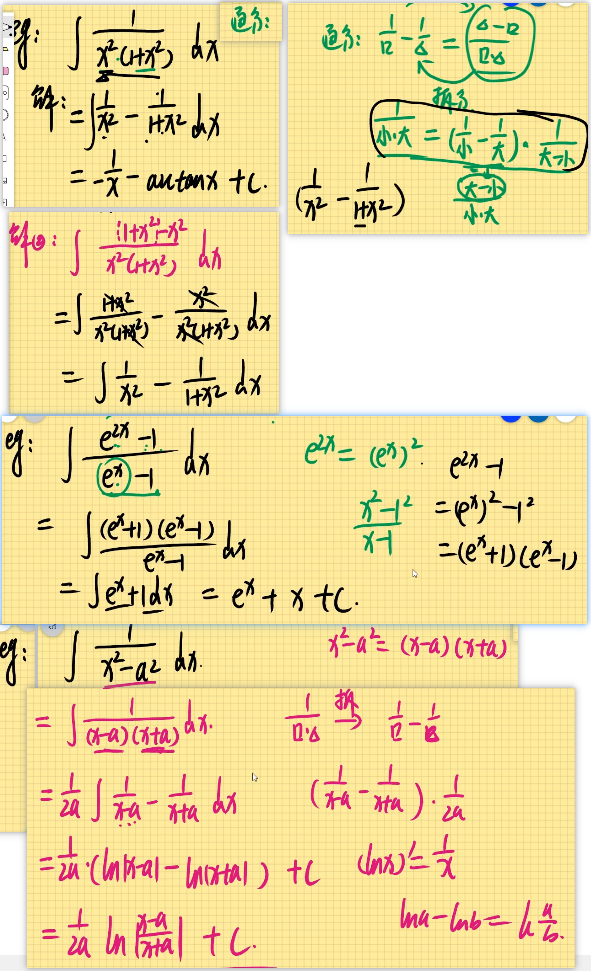 eg: ∫ 1/(x²(1+x²)) dx
通分:
解: = ∫ 1/x² - 1/(1+x²) dx
= -1/x - arctanx + C.
通分: 1/□ - 1/△ = (△-□)/(□·△)
拆分
1/(小·大) = (1/小 - 1/大) · 1/(大-小)
(大-小)/(小·大)
(1/x² - 1/(1+x²))
解②: ∫ ((1+x²)-x²)/(x²(1+x²)) dx
= ∫ (1+x²)/(x²(1+x²)) - x²/(x²(1+x²)) dx
= ∫ 1/x² - 1/(1+x²) dx
eg: ∫ (e^{2x}-1)/(e^x-1) dx
= ∫ (e^x+1)(e^x-1)/(e^x-1) dx
= ∫ e^x+1 dx = e^x + x + C.
e^{2x} = (e^x)².
(x²-1²)/(x-1)
e^{2x}-1
= (e^x)²-1²
= (e^x+1)(e^x-1)
eg: ∫ 1/(x²-a²) dx.
x²-a² = (x-a)(x+a)
= ∫ 1/((x-a)(x+a)) dx.
1/(□·△) 拆→ 1/□ - 1/△
= 1/2a ∫ 1/(x-a) - 1/(x+a) dx
(1/(x-a) - 1/(x+a)) · 1/2a
= 1/2a · (ln|x-a| - ln|x+a|) + C
(lnx)' = 1/x
= 1/2a ln|(x-a)/(x+a)| + C.
lna - lnb = ln a/b.